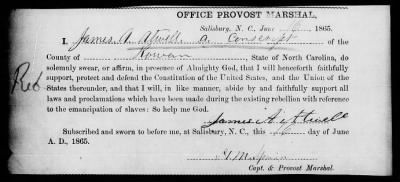 OFFICE PROVOST MARSHAL,
Salisbury, N. C., June 6, 1865.
I, James A. Atwell a conscript of the
County of Rowan, State of North Carolina, do
solemnly swear, or affirm, in presence of Almighty God, that I will henceforth faithfully
support, protect and defend the Constitution of the United States, and the Union of the
States thereunder, and that I will, in like manner, abide by and faithfully support all
laws and proclamations which have been made during the existing rebellion with reference
to the emancipation of slaves: So help me God.
Reb
James A. Atwell
Subscribed and sworn to before me, at Salisbury, N. C., this 6 day of June
A. D., 1865.
Capt. & Provost Marshal.